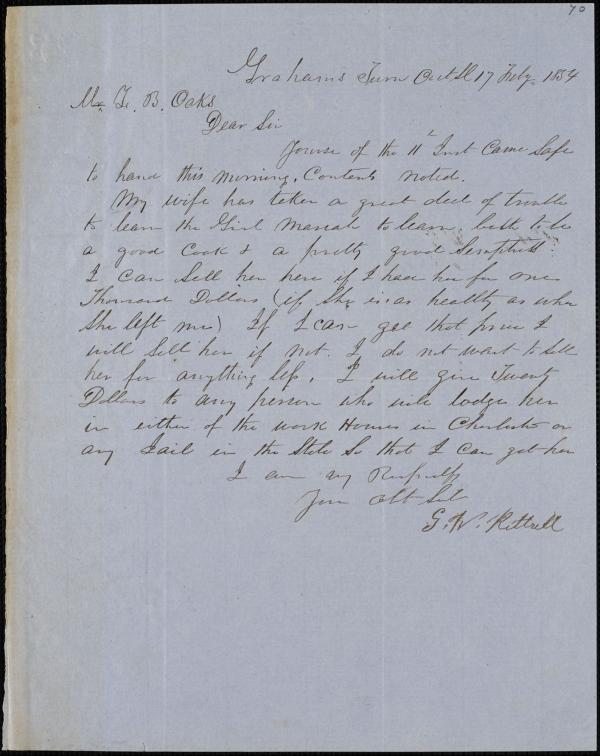 70
Grahams Turn Out 17 Feby 1854
Mr Z. B. Oaks
Dear Sir
Yourse of the 11" Inst Came Safe
to hand this morning, Contents noted.
My wife has taken a great deel of trouble
to learn the Girl Mariah to learn both to be
a good Cook & a pretty good Semptress
I can Sell her here if I have her for one
Thousand Dollars (if She is as healthy as when
She left me) If I can get that price I
will Sell her if not. I do not want to Sell
her for anything less. I will give Twenty
Dollars to any person who will lodge her
in either of the work Houses in Charleston or
any Jail in the State So that I can get her
I am very Respectfully
Your Obt Sert
G. W. Kittrell